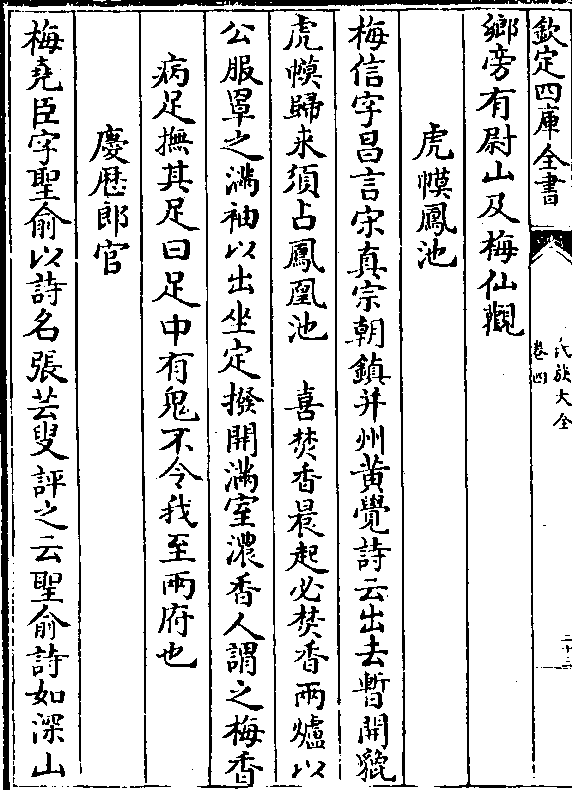 欽定四庫全書
氏族大全
卷四
二十三
鄉旁有尉山及梅仙觀
虎幙鳳池
梅信字昌言宋真宗朝鎮并州黄覺詩云出去暫開貔
虎幙歸來須占鳳凰池　喜焚香晨起必焚香兩爐以
公服罩之滿袖以出坐定撥開滿室濃香人謂之梅香
病足撫其足曰足中有鬼不令我至兩府也
慶厯郎官
梅堯臣字聖俞以詩名張芸叟評之云聖俞詩如深山